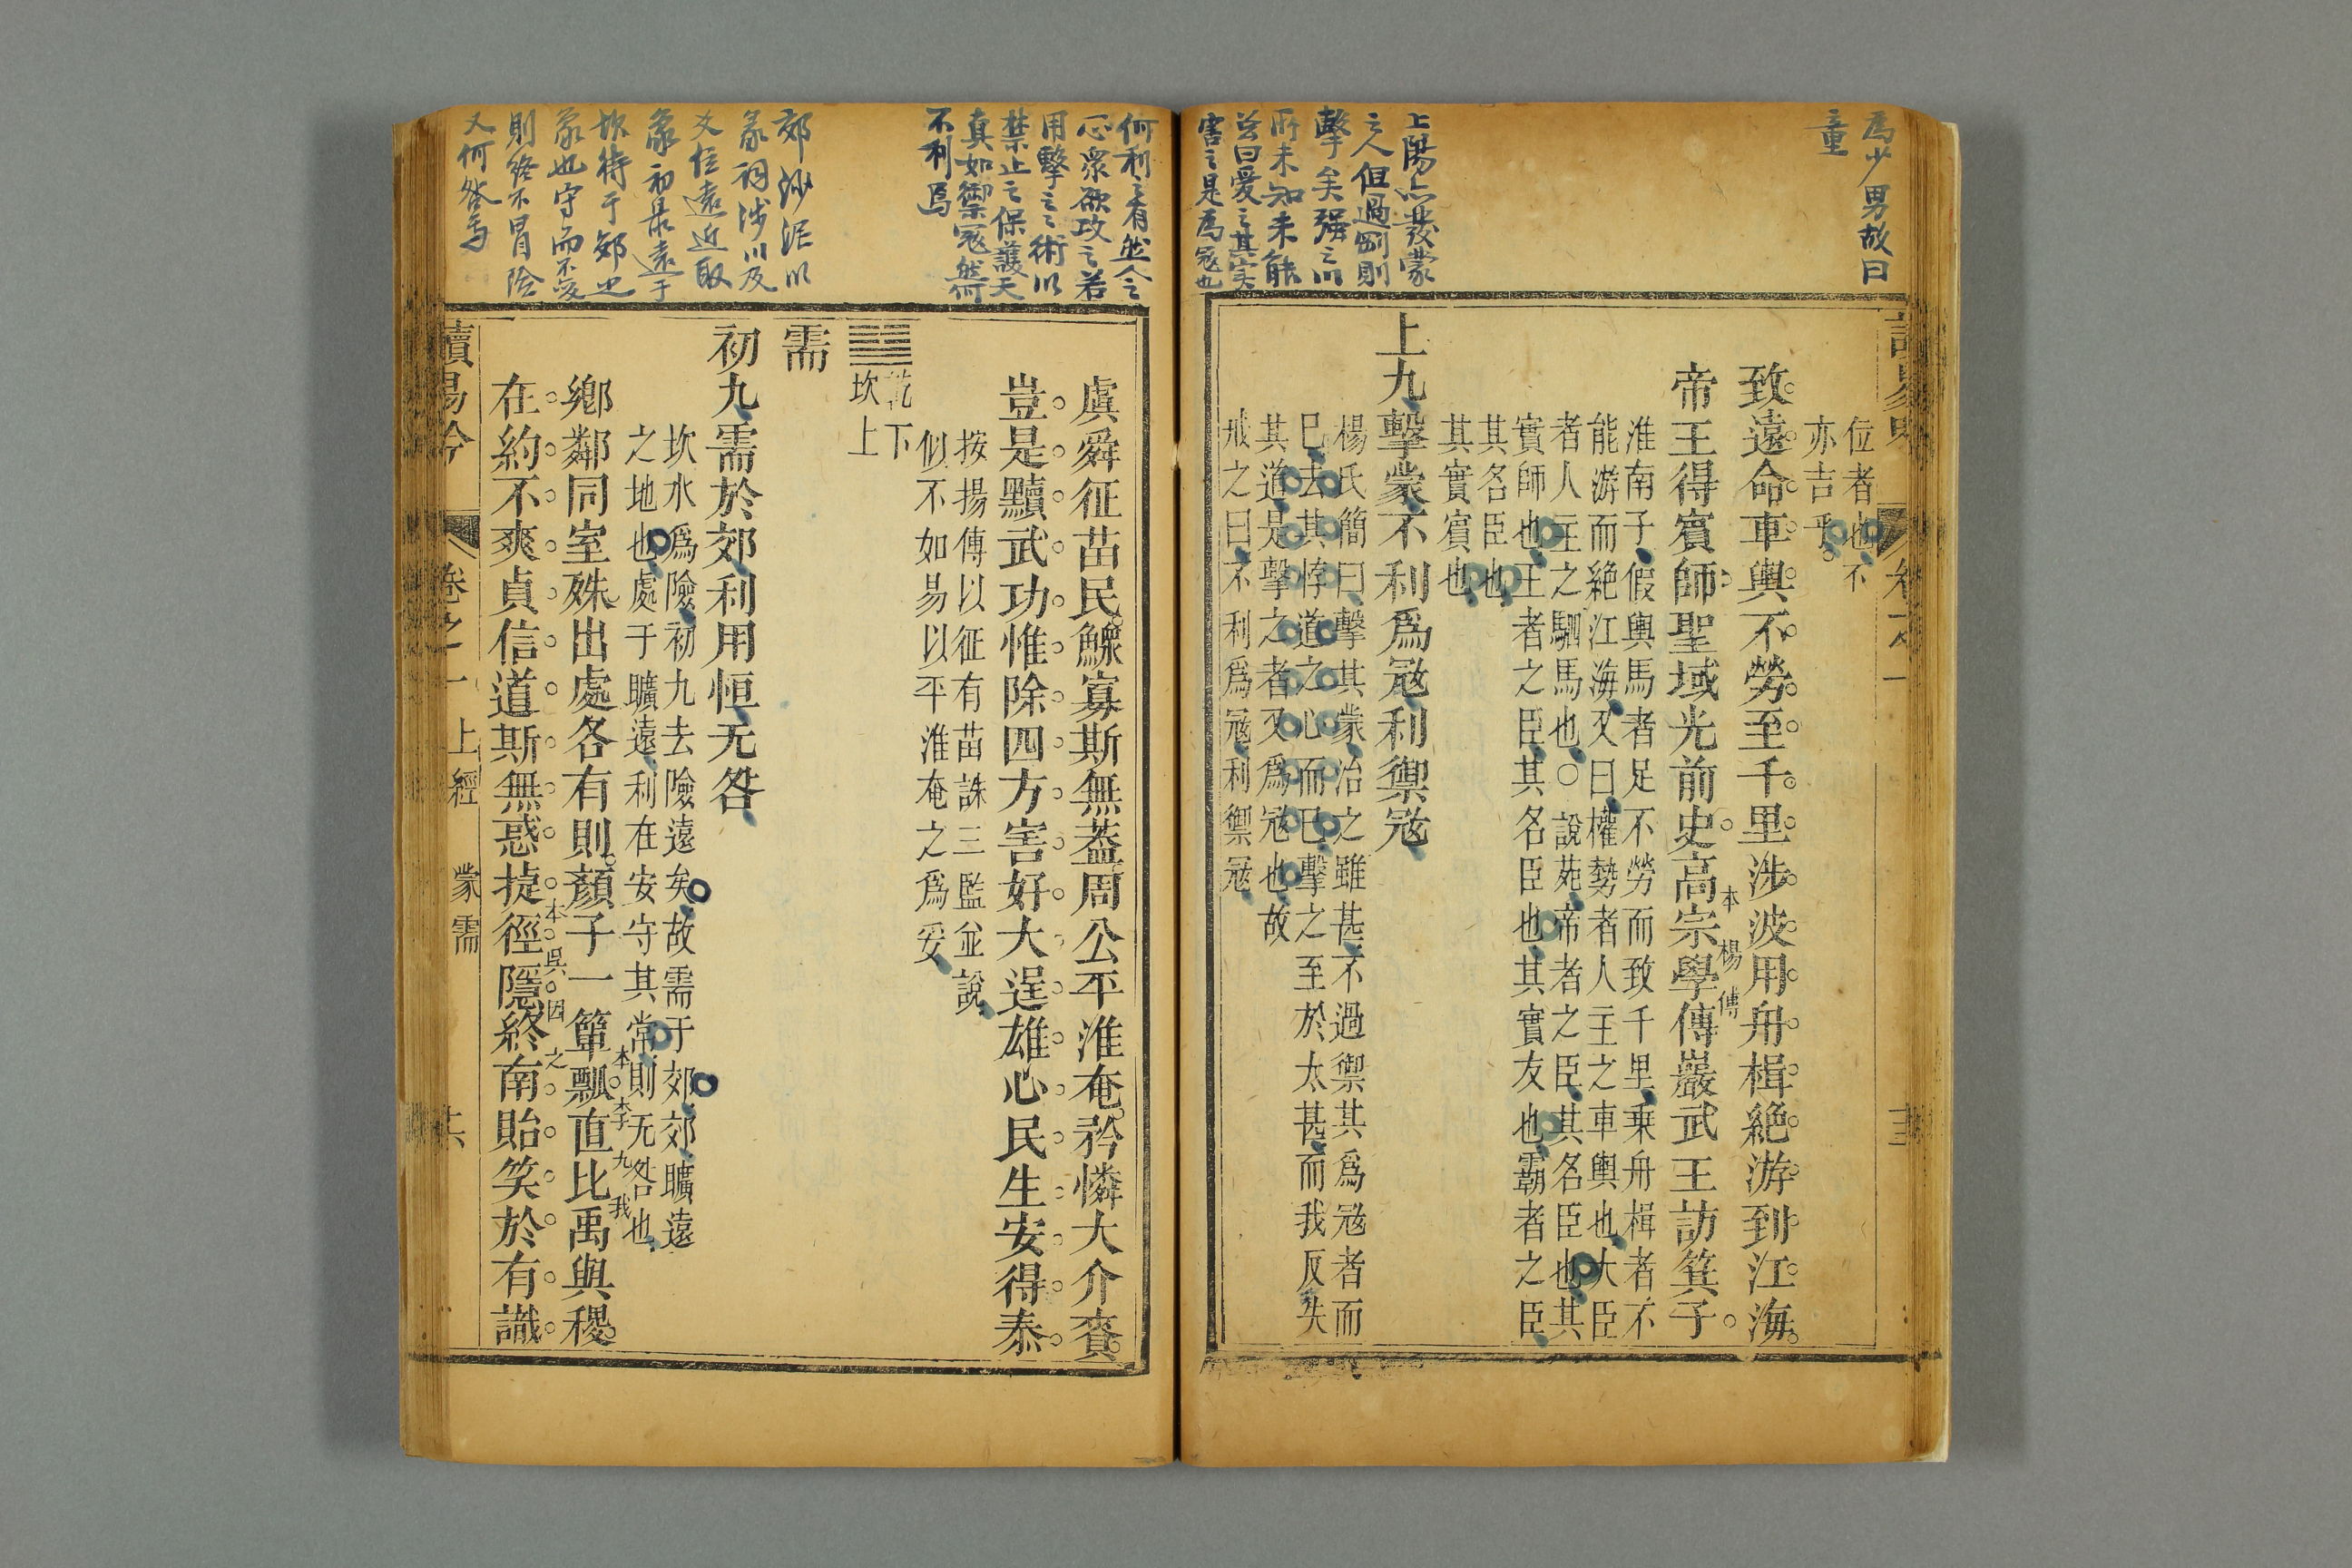 爲少男故曰
童
上陽亦發蒙
之人但過剛則
擊矣强之以
所未知未能
曰愛之其实
害之是爲寇也
位者也不
亦吉乎
致遠命車輿不勞至千里涉波用舟楫絶游到江海
帝王得賓師聖域光前史高宗學傅巖武王訪箕子
本 楊 傅
淮南子假輿馬者足不勞而致千里乗舟楫者不
能游而絶江海又曰權勢者人主之車輿也大臣
者人主之駟馬也○說苑帝者之臣其名臣也其
實師也王者之臣其名臣也其實友也霸者之臣
其名臣也
其實賓也
上九擊蒙不利爲寇利禦寇
楊氏簡曰擊其蒙治之雖甚不過禦其爲寇者而
巳去其悖道之心而巳擊之至於太甚而我反失
其道是擊之者又爲寇也故
戒之曰不利爲寇利禦寇
何利之有然今
心衆欲攻之若
用擊之之術以
禁止之保護天
真如禦寇然何
不利焉
郊沙泥以
彖詞涉川及
爻位遠近取
象初最遠于
坎待于郊之
象也守而不變
則終不冒險
又何咎焉
虞舜征苗民鰥寡斯無葢周公平淮奄矜憐大介賚
豈是黷武功惟除四方害好大逞雄心民生安得泰
按揚傳以征有苗誅三監並說
似不如易以平淮奄之爲妥
乾下
坎上
需
初九需於郊利用恒无咎
坎水爲險初九去險遠矣故需于郊郊曠遠
之地也處于曠遠利在安守其常則无咎也
鄉鄰同室殊出處各有則顏子一簞瓢直比禹與稷
本 李 九 我
在約不爽貞信道斯無惑捷徑隱終南貽笑於有識
本 吳 因 之
讀易吟
卷之一 上經 蒙需